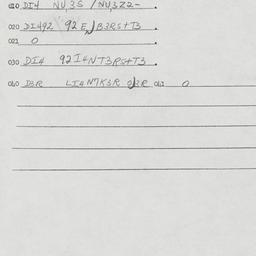 010 DI4 NU,3S / NU,3Z2- .
020 DI492 92 E,)B3RS+T3 .
021 0 .
030 DI4 92I4NT3RS+T3 .
040 D3R LI4N7K3R 0)3R 041 0